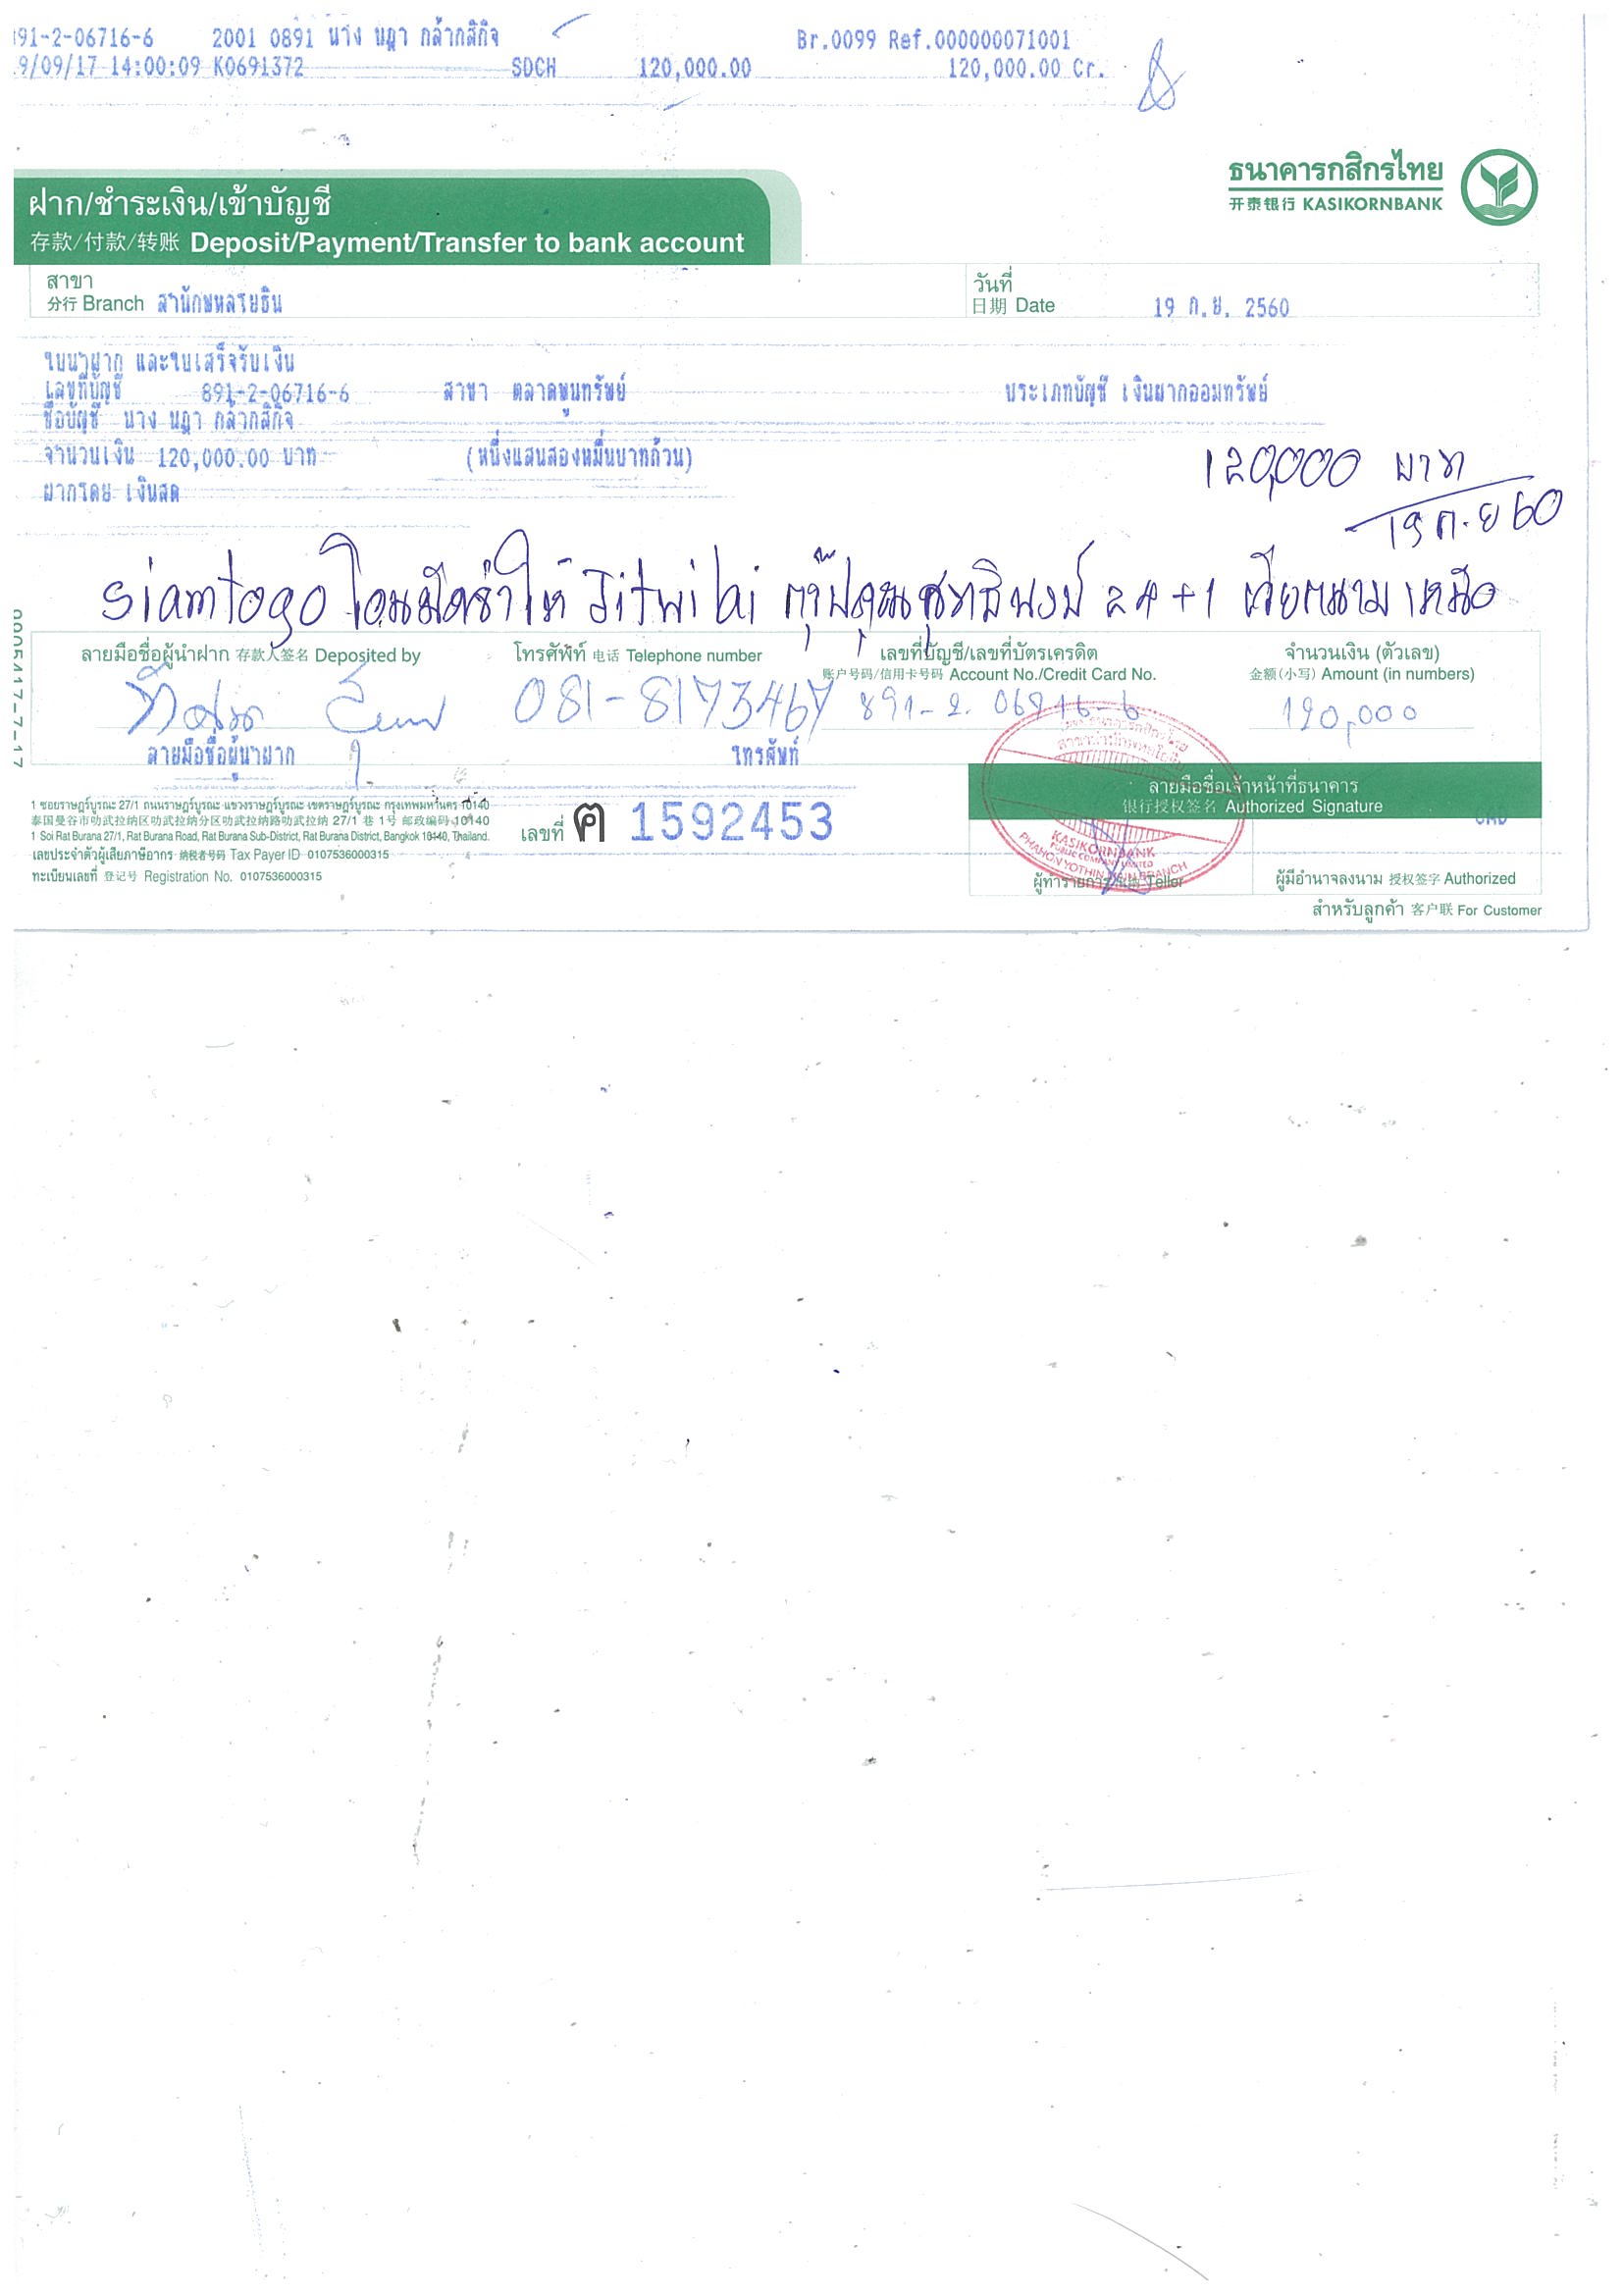 91-2-06716-6 2001 0891 นาง นฎา กล้ากสิกิจ Br.0099 Ref.000000071001
9/09/17 14:00:09 K0691372 SDCH 120,000.00 120,000.00 Cr.
ธนาคารกสิกรไทย
开泰银行 KASIKORNBANK
ฝาก/ชำระเงิน/เข้าบัญชี
存款/付款/转账 Deposit/Payment/Transfer to bank account
สาขา
分行 Branch สำนักพหลโยธิน
วันที่
日期 Date 19 ก.ย. 2560
ใบนำฝาก และใบเสร็จรับเงิน
เลขที่บัญชี 891-2-06716-6 สาขา ตลาดพูนทรัพย์ ประเภทบัญชี เงินฝากออมทรัพย์
ชื่อบัญชี นาง นฎา กล้ากสิกิจ
จำนวนเงิน 120,000.00 บาท (หนึ่งแสนสองหมื่นบาทถ้วน)
ฝากโดย เงินสด
120,000 บาท
19 ก.ย 60
siamtogo โอนมัดจำให้ Jitwilai กรุ๊ปคุณสุทธิพงษ์ 24+1 เวียดนามเหนือ
ลายมือชื่อผู้นำฝาก 存款人签名 Deposited by
โทรศัพท์ 电话 Telephone number
081-8173467
เลขที่บัญชี/เลขที่บัตรเครดิต
账户号码/信用卡号码 Account No./Credit Card No.
891-2-06716-6
จำนวนเงิน (ตัวเลข)
金额(小写) Amount (in numbers)
120,000
ลายมือชื่อผู้นำฝาก โทรศัพท์
1 ซอยราษฎร์บูรณะ 27/1 ถนนราษฎร์บูรณะ แขวงราษฎร์บูรณะ เขตราษฎร์บูรณะ กรุงเทพมหานคร 10140
泰国曼谷市叻武拉纳区叻武拉纳分区叻武拉纳路叻武拉纳 27/1 巷 1号 邮政编码 10140
1 Soi Rat Burana 27/1, Rat Burana Road, Rat Burana Sub-District, Rat Burana District, Bangkok 10140, Thailand.
เลขประจำตัวผู้เสียภาษีอากร 纳税者号码 Tax Payer ID 0107536000315
ทะเบียนเลขที่ 登记号 Registration No. 0107536000315
เลขที่ ฅ 1592453
ลายมือชื่อเจ้าหน้าที่ธนาคาร
银行授权签名 Authorized Signature
KASIKORNBANK
PUBLIC COMPANY LIMITED
PHAHON YOTHIN MAIN BRANCH
ผู้ทำรายการ Teller
ผู้มีอำนาจลงนาม 授权签字 Authorized
สำหรับลูกค้า 客户联 For Customer